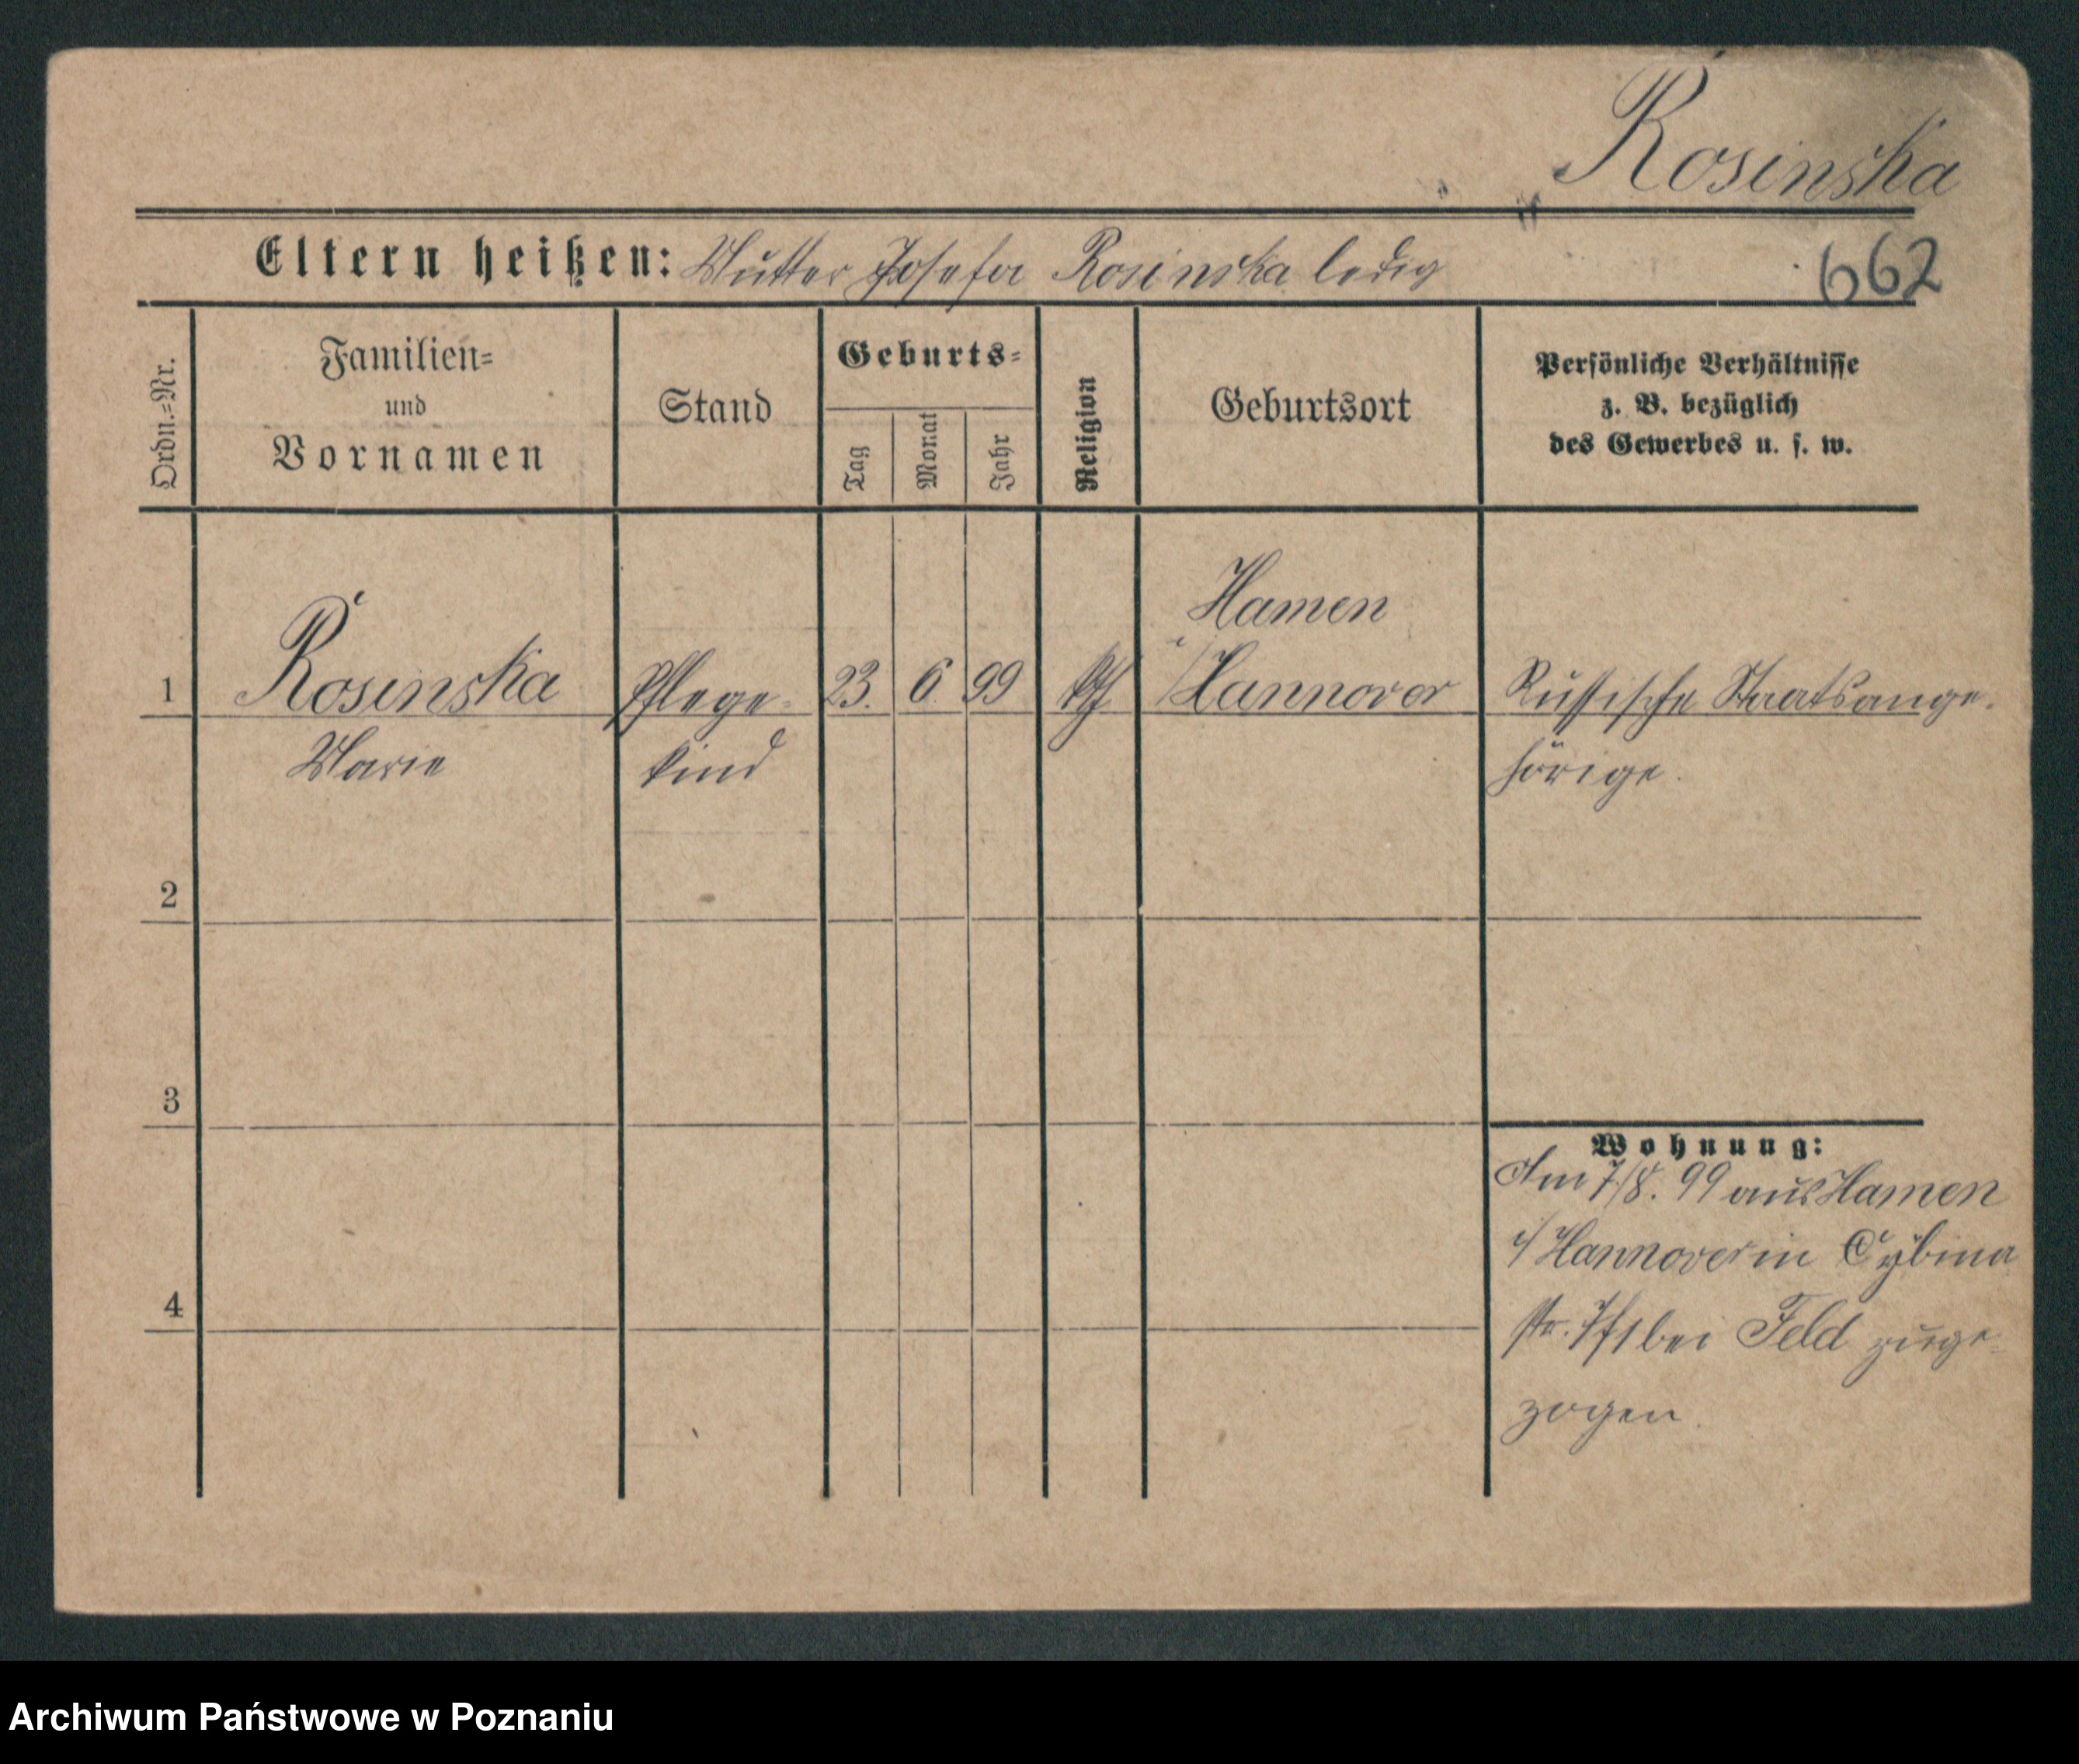 Rosinska
Eltern heißen: Mutter Josefa Rosinska ledig
662
Ordn.=Nr.
Familien=
und
Vornamen
Stand
Geburts=
Tag
Monat
Jahr
Religion
Geburtsort
Persönliche Verhältnisse
z. B. bezüglich
des Gewerbes u. s. w.
Hamen
1 Rosinska Pflege- 23. 6 99 kth i/Hannover Russische Staatsange-
Marie kind hörige.
2
3
Wohnung:
Am 7/8. 99 aus Hamen
i/Hannover in Cybina
str. bei Feld zuge-
4
zogen.
Archiwum Państwowe w Poznaniu